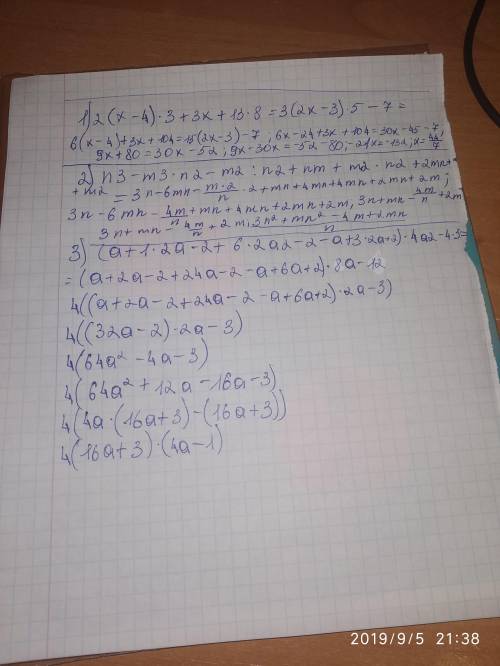 1) 2(x-4)·3+3x+13·8=3(2x-3)·5-7=
6(x-4)+3x+104=15(2x-3)-7; 6x-24+3x+104=30x-45-7,
9x+80=30x-52; 9x-30x=-52-80; -21x=-132; x=44/7
2) n3-m3·n2-m2:n2+nm+m2·n2+2mn+
+m2 =3n-6mn-m·2/n·2+mn+4mn+4mn+2mn+2m;
3n-6mn-4m/n+mn+4mn+2mn+2m, 3n+mn-4m/n+2m
3n+mn-4m/n+2m; 3n²+mn²-4m+2mn/n
3) (a+1·2a-2+6·2a2-2-a+3·2a+2)·4a2-4·3=
=(a+2a-2+24a-2-a+6a+2)·8a-12
4((a+2a-2+24a-2-a+6a+2)·2a-3)
4((32a-2)·2a-3)
4(64a²-4a-3)
4(64a²+12a-16a-3)
4(4a·(16a+3)-(16a+3))
4(16a+3)·(4a-1)
2019/9/5 21:38